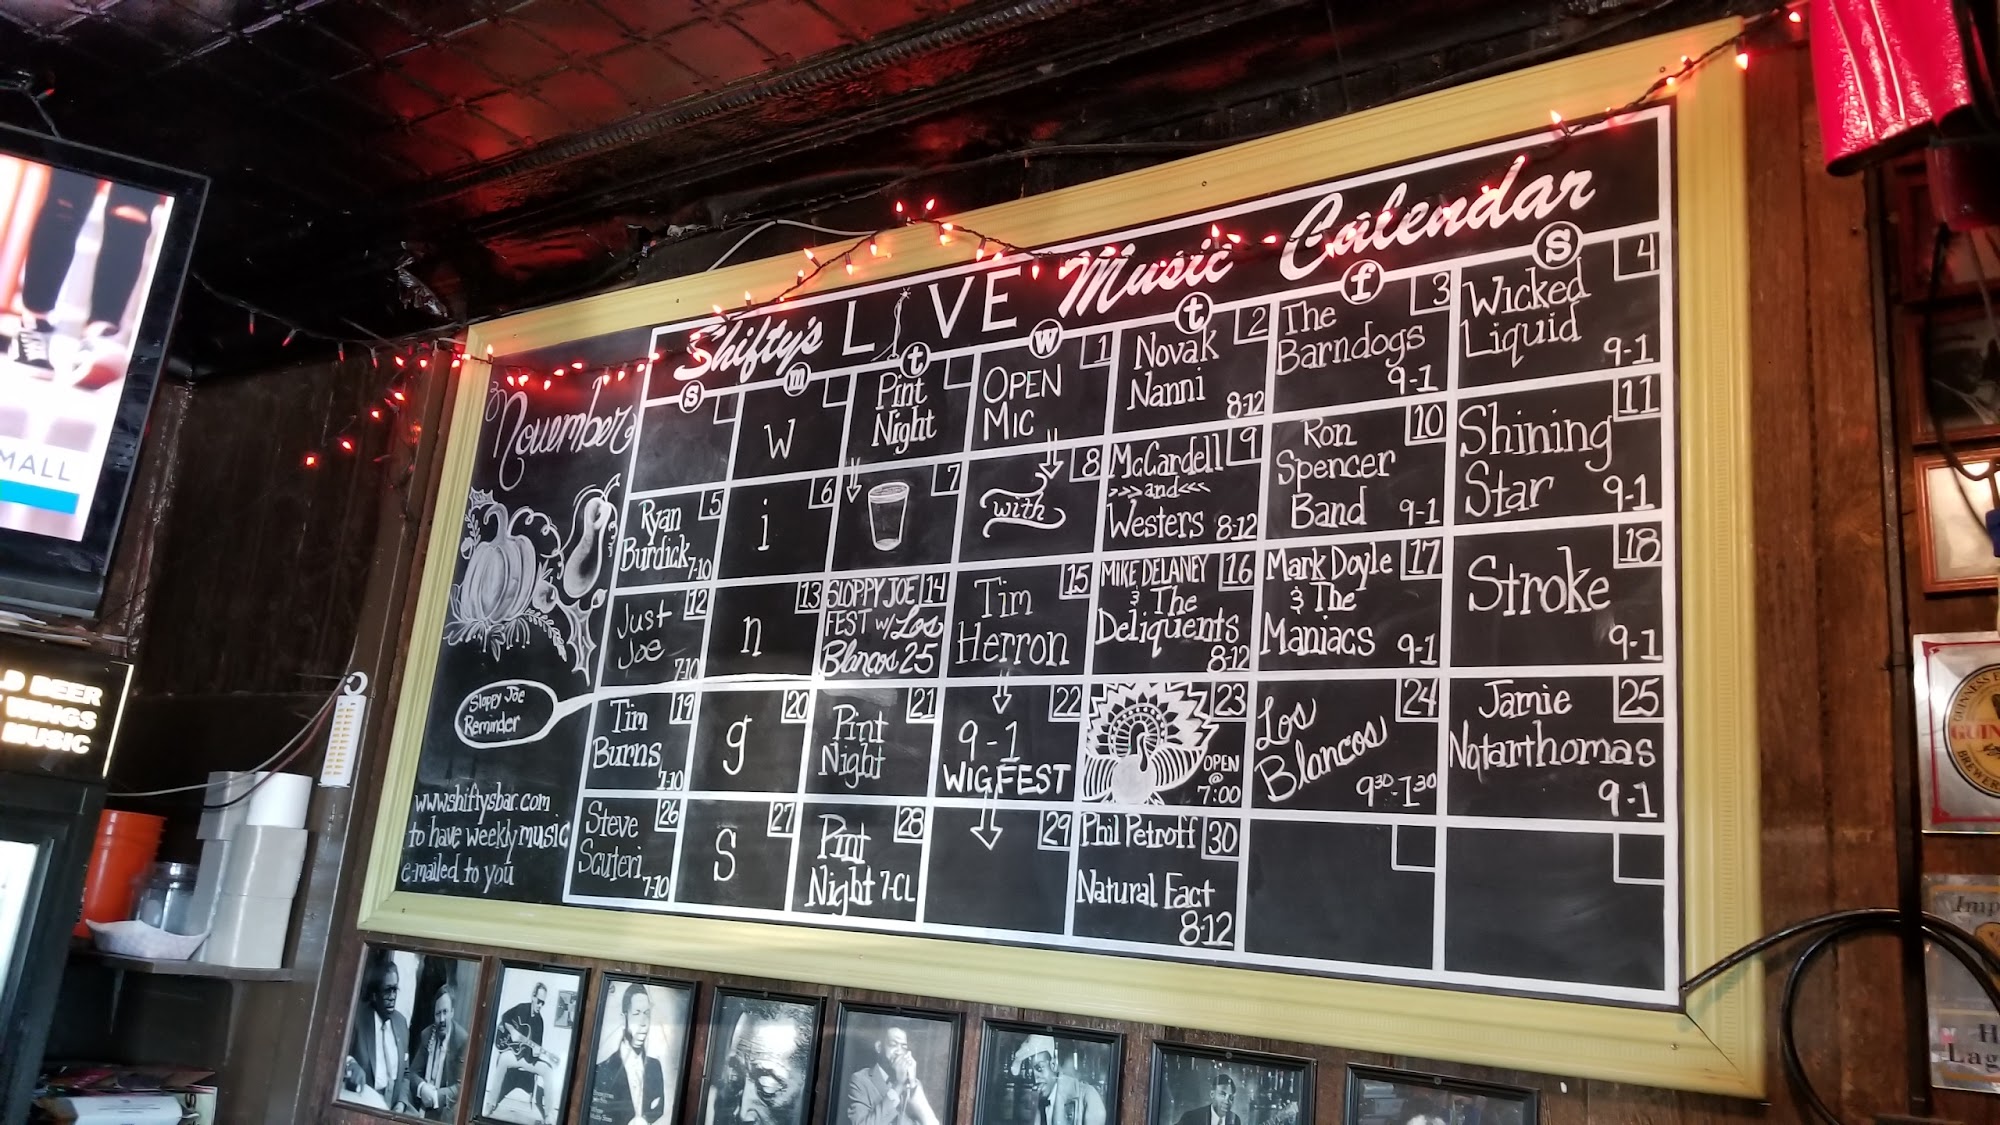 Shifty's LIVE Music Calendar
s m t w t f s
November
w
Pint
Night
OPEN
MIC
1
Novak
Nanni
8-12
2
The
Barndogs
9-1
3
Wicked
Liquid
9-1
4
Ryan
Burdick
7-10
5
i
6
7
with
8
McCardell
>>>and<<<
Westers 8-12
9
Ron
Spencer
Band 9-1
10
Shining
Star 9-1
11
Just
Joe
7-10
12
n
13
SLOPPY JOE
FEST w/ Los
Blancos 2-5
14
Tim
Herron
15
MIKE DELANEY
& The
Deliquents
8-12
16
Mark Doyle
& The
Maniacs 9-1
17
Stroke
9-1
18
Sloppy Joe
Reminder
Tim
Burns
7-10
19
g
20
Pint
Night
21
9-1
WIGFEST
22
OPEN
@
7:00
23
Los
Blancos
930-130
24
Jamie
Notarthomas
9-1
25
www.shiftysbar.com
to have weekly music
e-mailed to you
Steve
Scuteri
7-10
26
s
27
Pint
Night 7-CL
28
29
Phil Petroff
Natural Fact
8-12
30
MALL
LD BEER
WINGS
MUSIC
GUINNESS
BREWERY
Imp
H
Lag